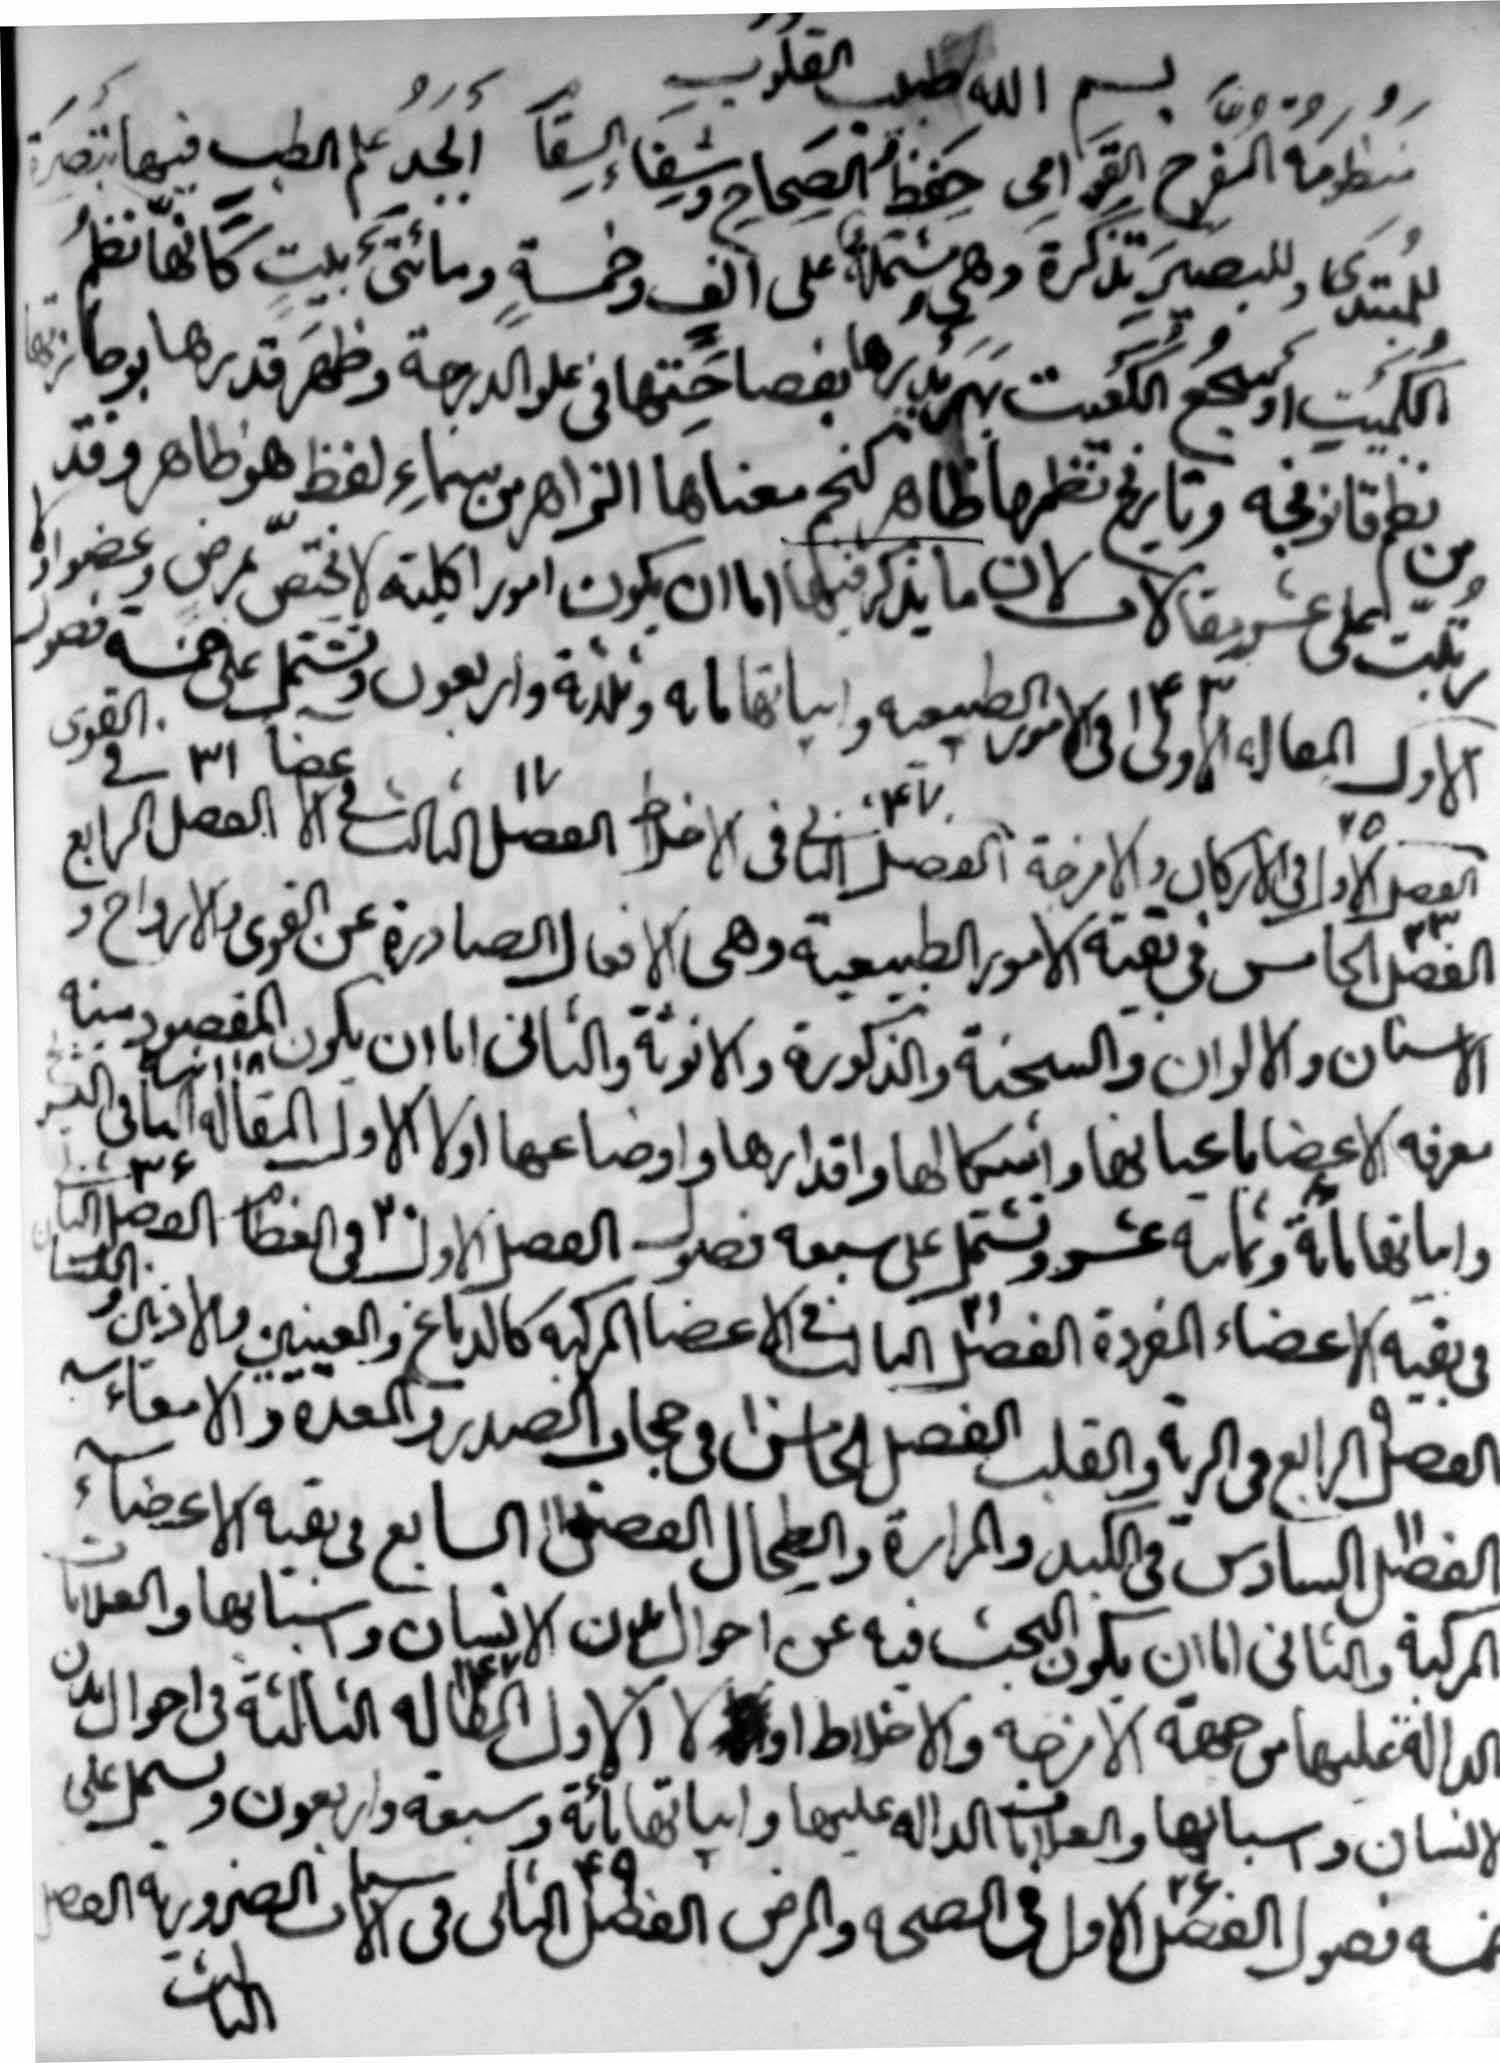 بسم الله طبيب القلوب
منظومة المفرح القوامى حفظ الصحاح وشفاء السقا ابجد علم الطب فيها تبصرة
للمبتدى وللبصير تذكرة وهى مشتملة على الف وخمسة ومائتى بيت كانها نظم
الكميت او سجع الكعيت بفصاحتها فى علو الدرجة وظهر قدرها بوصا
من نظم قانونجه وتاريخ نظمها ظاهر كنجم معناها الزاهر من سماء لفظ هو ظاهر وقد
رتبت على عشر مقالات لان ما يذكر فيها اما ان يكون امورا كلية لا تختص بمرض وعضو اولا
الاول المقالة الاولى ١٤٣ فى الامور الطبيعيه وابياتها مايه وثلثة واربعون وتشتمل على خمسة فصول
الفصل الاول ٢٥ فى الاركان والامزجة الفصل الثانى ٤٧ فى الاخلاط الفصل الثالث ١٧ فى الاعضا الفصل الرابع ٣١ فى القوى
الفصل الخامس ٢٣ فى بقية الامور الطبيعية وهى الافعال الصادرة عن القوى والارواح و
الاسنان والالوان والسحنة والذكورة والانوثة والثانى اما ان يكون المقصود منه
معرفه الاعضا باعيانها واشكالها واقدارها واوضاعها اولا الاول المقالة الثانية ١١٨ فى التشريح
وابياتها مائة وثمانية عشر وتشتمل على سبعه فصول الفصل الاول ٢٠ فى العظام الفصل الثانى ٣٦
فى بقيه الاعضاء المفردة الفصل الثالث ٢١ فى الاعضا المركبه كالدماغ والعينين والاذنين واللسان
الفصل الرابع ٩ فى الرية والقلب الفصل الخامس ١٠ فى حجاب الصدر والمعدة والامعاء
الفصل السادس ١١ فى الكبد والمرارة والطحال الفصل السابع ١١ فى بقيه الاعضاء
المركبة والثانى اما ان يكون البحث فيه عن احوال بدن الانسان واسبابها والعلامات
الدالة عليها من جهة الامزجه والاخلاط اولا الاول المقاله الثالثة ١٤٧ فى احوال بدن
الانسان واسبابها والعلامات الداله عليها وابياتها مائة وسبعة واربعون وتشتمل على
خمسه فصول الفصل الاول ٢٦ فى الصحه والمرض الفصل الثانى ٤٩ فى الاسباب الضروريه الفصل
الثالث